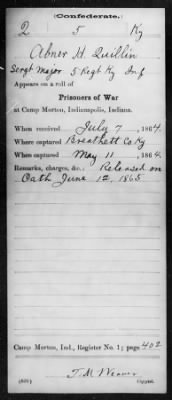 (Confederate.)
2 5 Ky
Abner H. Quillin
Sergt Major 5 Regt Ky Inf
Appears on a roll of
Prisoners of War
at Camp Morton, Indianapolis, Indiana.
When received July 7, 1864.
Where captured Breathett Co Ky
When captured May 11, 1864.
Remarks, charges, &c.: Released on
Oath June 12, 1865
Camp Morton, Ind., Register No. 1; page 402
T. M. Weaver
Copyist.